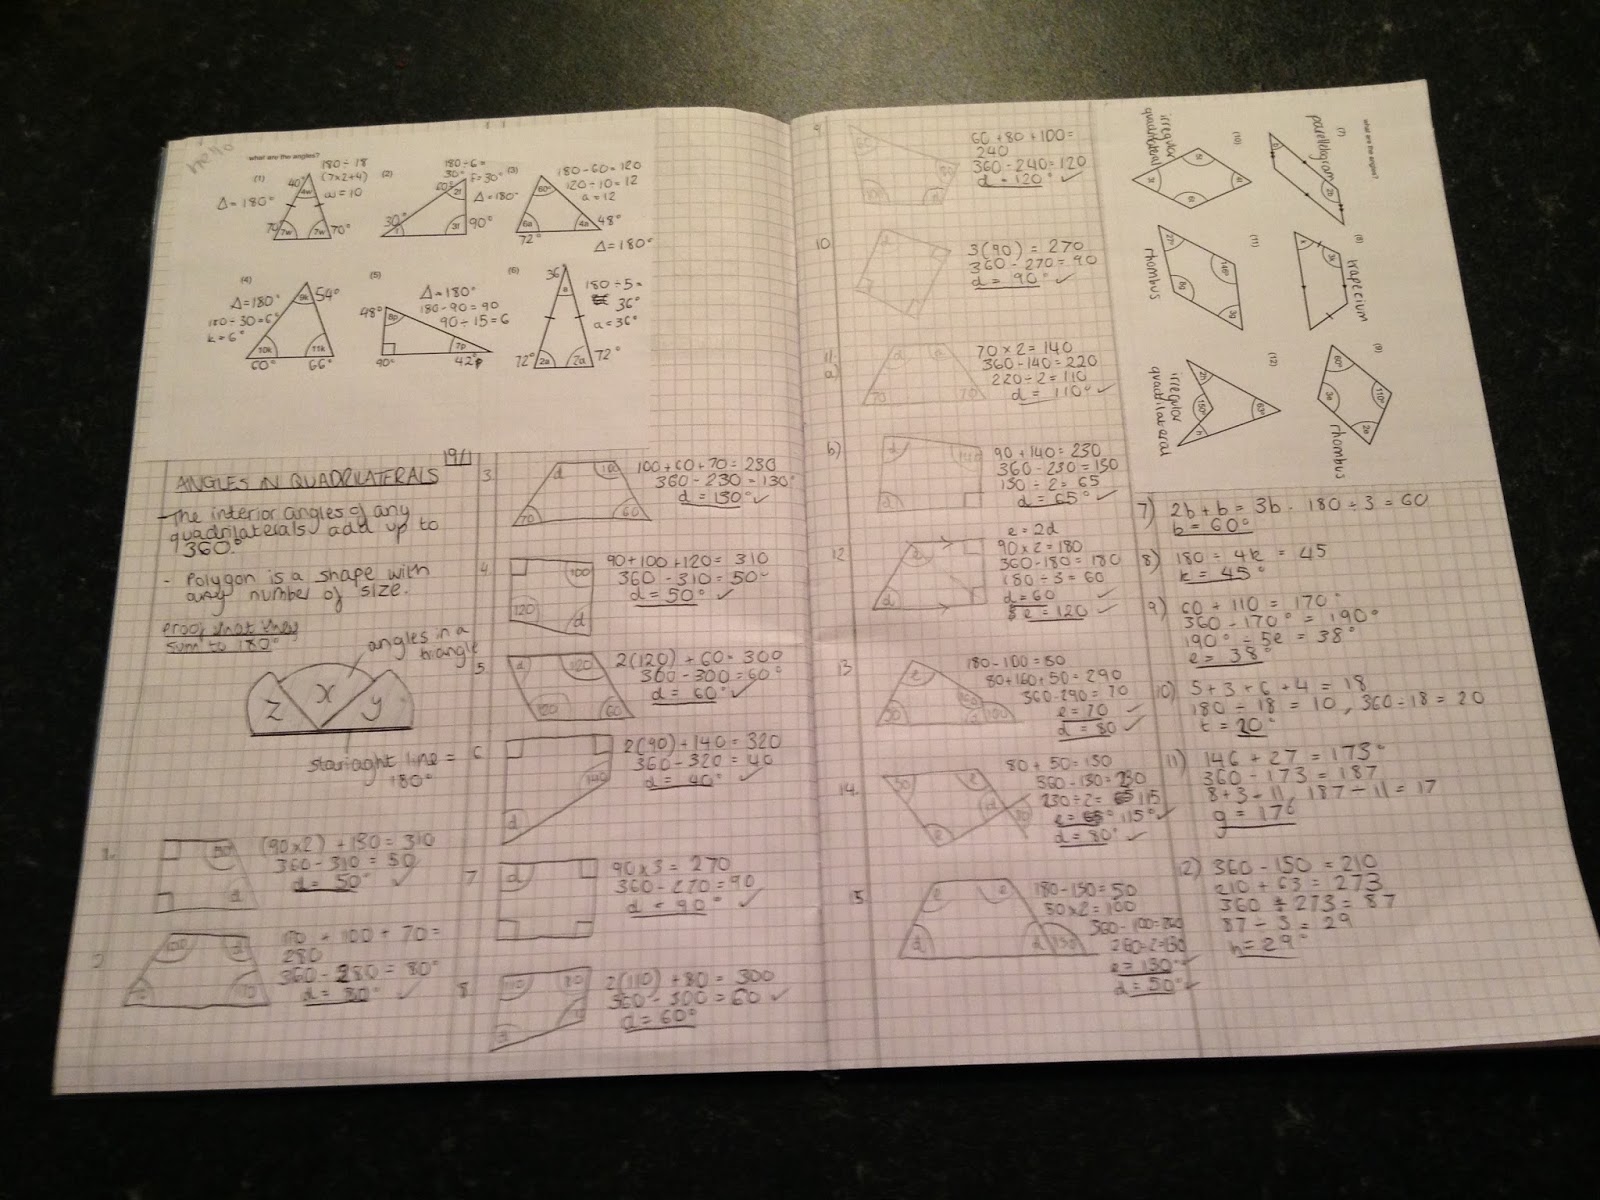 hello
what are the angles?
(1)
180 ÷ 18
(7x2+4)
w = 10
Δ = 180°
40°
4w
70
7w
7w
70°
(2)
180 ÷ 6 =
30°
f = 30°
60°
2f
Δ = 180°
30°
f
3f
90°
(3)
180 - 60 = 120
120 ÷ 10 = 12
a = 12
60°
6a
4a
48°
72°
Δ = 180°
(4)
Δ = 180°
180 ÷ 30 = 6°
k = 6°
9k
54°
10k
11k
60°
66°
(5)
Δ = 180°
180 - 90 = 90
90 ÷ 15 = 6
48°
8p
7p
90°
42°
(6)
36°
a
180 ÷ 5 =
36°
a = 36°
72°
2a
2a
72°
19/1
ANGLES IN QUADRILATERALS
- The interior angles of any
quadrilaterals add up to
360°.
- Polygon is a shape with
any number of size.
proof that they
sum to 180°
angles in a
triangle
z x y
stariaght line =
180°
1.
(90x2) + 130 = 310
360 - 310 = 50
d = 50° ✓
d
2
+ 100 + 70 =
280
360 - 280 = 80°
d = 80° ✓
100
d
70
3
d
100
70
60
100 + 60 + 70 = 230
360 - 230 = 130°
d = 130° ✓
4
100
120
d
90 + 100 + 120 = 310
360 - 310 = 50
d = 50° ✓
5
d
120
120
60
2(120) + 60 = 300
360 - 300 = 60°
d = 60° ✓
6
140
d
2(90) + 140 = 320
360 - 320 = 40
d = 40° ✓
7
d
90 x 3 = 270
360 - 270 = 90
d = 90° ✓
8
110
80
2(110) + 80 = 300
360 - 300 = 60 ✓
d = 60°
9
60 + 80 + 100 =
240
360 - 240 = 120
d = 120° ✓
10
3(90) = 270
360 - 270 = 90
d = 90° ✓
11.
a)
d
70
70
70 x 2 = 140
360 - 140 = 220
220 ÷ 2 = 110
d = 110° ✓
b)
d
140
d
90 + 140 = 230
360 - 230 = 130
130 ÷ 2 = 65
d = 65° ✓
12
e
d
e = 2d
90 x 2 = 180
360 - 180 = 180
180 ÷ 3 = 60
d = 60 ✓
e = 120 ✓
13
e
d
100
180 - 100 = 80
80 + 160 + 50 = 290
360 - 290 = 70
e = 70 ✓
d = 80 ✓
14.
50
e
d
e
80 + 50 = 130
360 - 130 = 230
230 ÷ 2 = 115
e = 115° ✓
d = 80° ✓
15
e
e
d
d
130
180 - 130 = 50
50 x 2 = 100
360 - 100 = 260
260 ÷ 2 = 130
e = 130° ✓
d = 50° ✓
what are the angles?
(7)
parellelogram
b
2b
(8)
trapezium
k
3k
(9)
rhombus
60°
110°
3e
2e
(10)
irregular
quadrilateral
(11)
rhombus
27°
146°
8g
3g
(12)
irregular
quadrilateral
2h
150°
63°
h
7) 2b + b = 3b . 180 ÷ 3 = 60
b = 60°
8) 180 ÷ 4k = 45
k = 45°
9) 60 + 110 = 170°
360 - 170° = 190°
190° ÷ 5e = 38°
e = 38°
10) 5 + 3 + 6 + 4 = 18
180 ÷ 18 = 10 , 360 ÷ 18 = 20
t = 20°
11) 146 + 27 = 173°
360 - 173 = 187
8 + 3 = 11, 187 ÷ 11 = 17
g = 176
12) 360 - 150 = 210
210 + 63 = 273
360 ÷ 273 = 87
87 ÷ 3 = 29
h = 29°